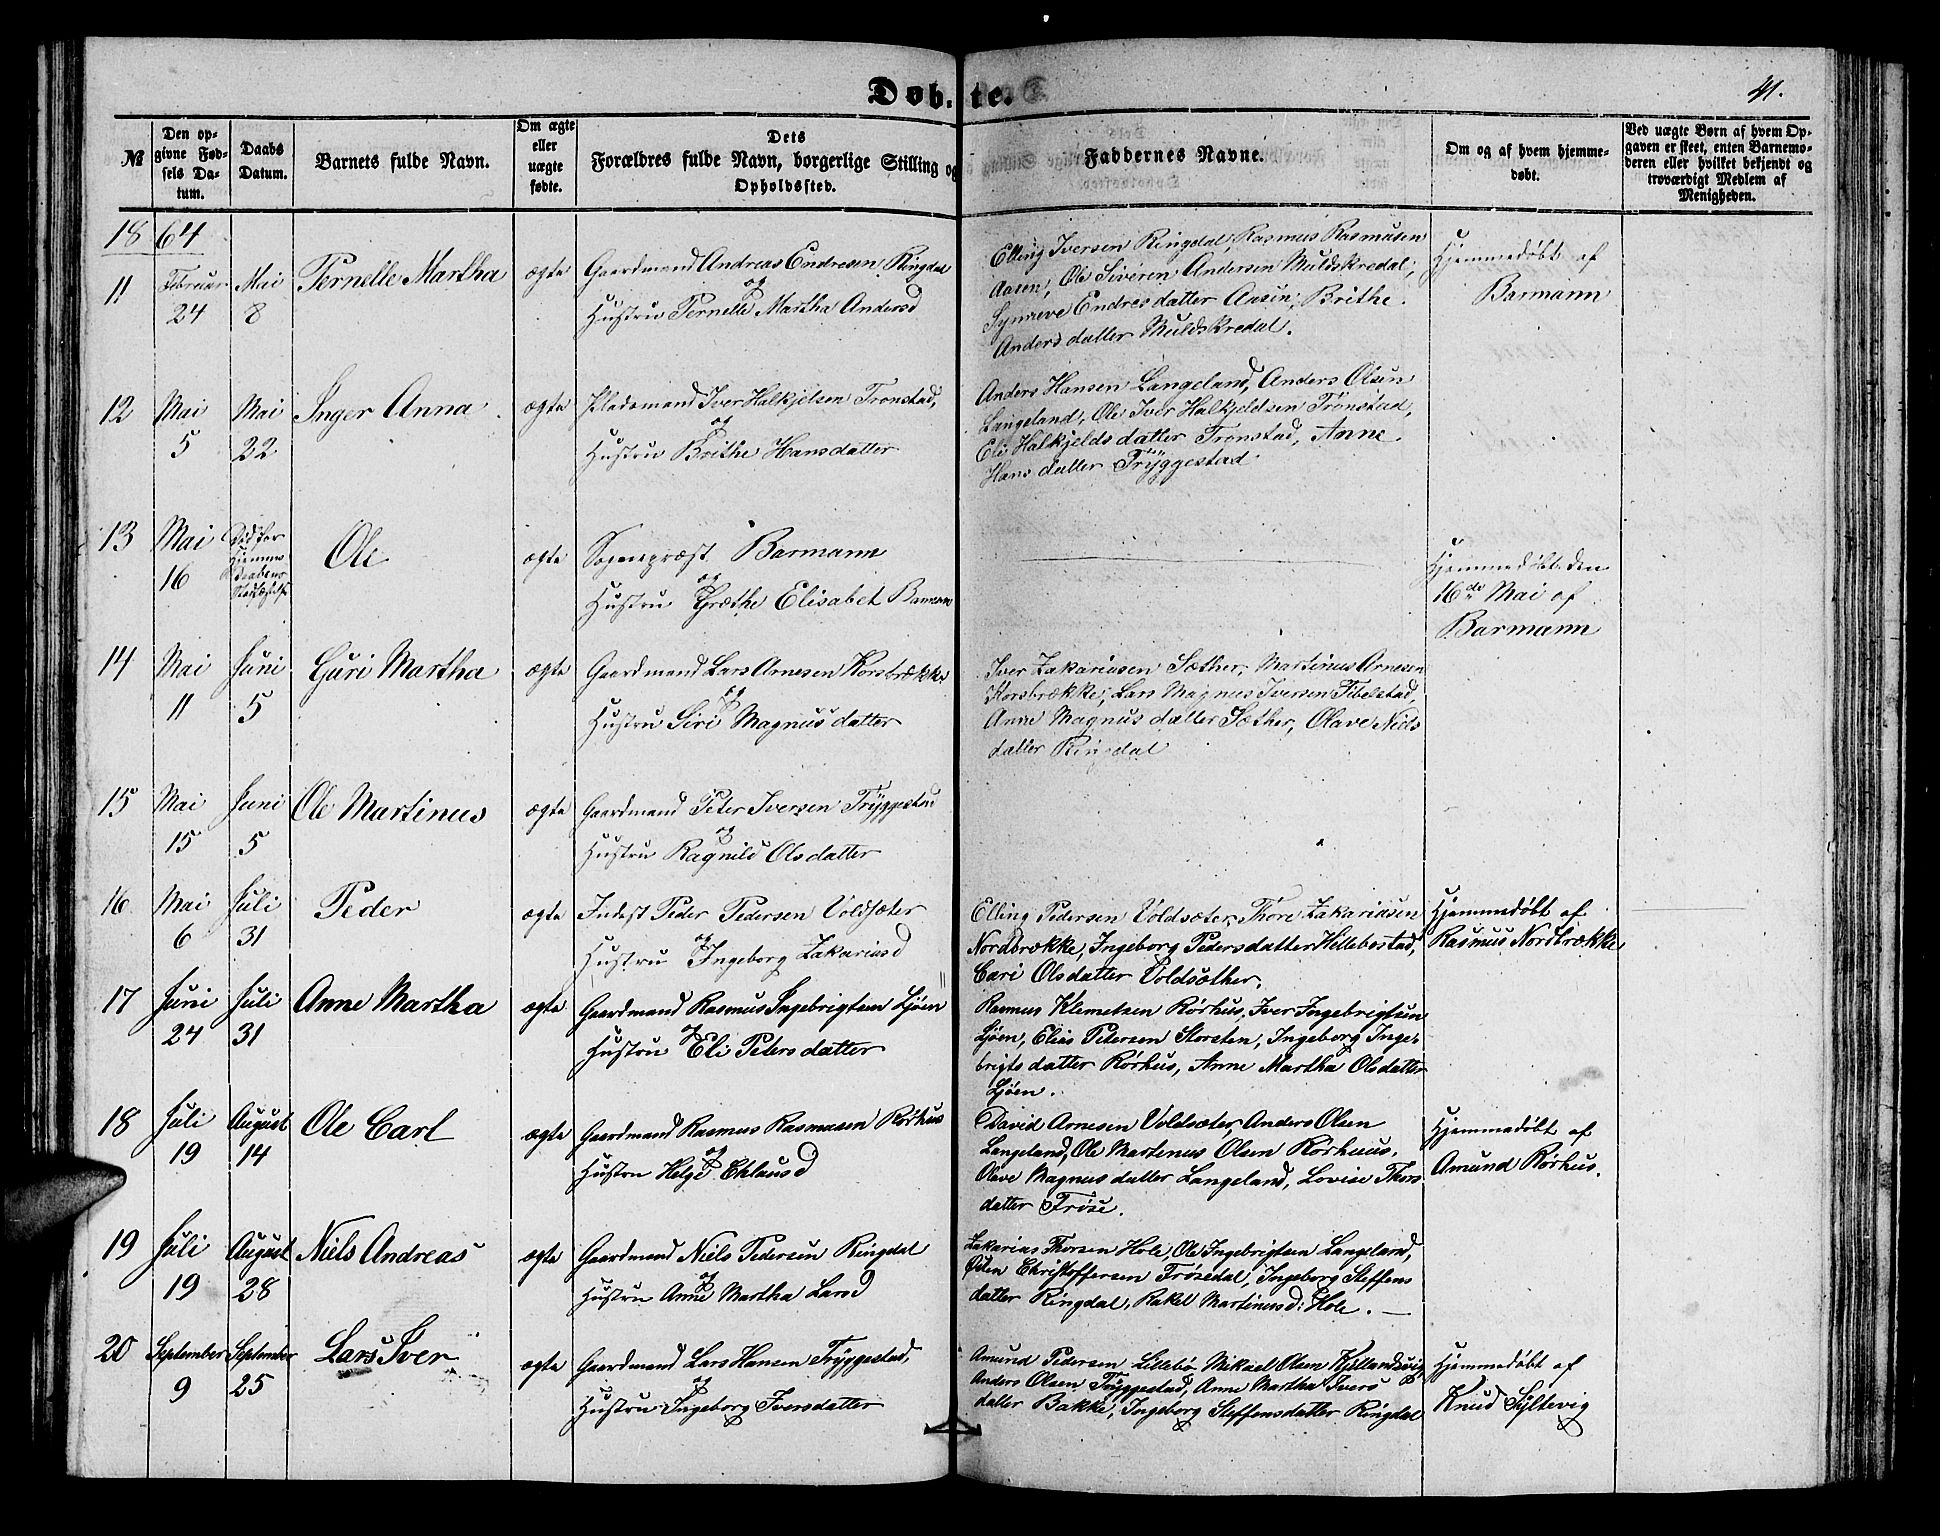 Døbte.
41.
№
Den opgivne Fødsels Datum.
Daabs Datum.
Barnets fulde Navn.
Om ægte eller uægte fødte.
Dets Forældres fulde Navn, borgerlige Stilling og Opholdssted.
Faddernes Navne.
Om og af hvem hjemmedøbt.
Ved uægte Børn af hvem Opgaven er skeet, enten Barnemoderen eller hvilket bekjendt og troværdigt Medlem af Menigheden.
1864
11
Februar 24
Mai 8
Pernelle Martha
ægte
Gaardmand Andreas Endresen Ringdal
og
Hustru Pernelle Martha Andersd
Elling Iversen Ringdal, Rasmus Rasmusen
Aasen, Ole Siveren Andersen Muldskredal,
Synneve Endresdatter Aasen, Brithe
Andersdatter Muldskredal.
Hjemmedøbt af
Barmann
12
Mai 5
Mai 22
Inger Anna
ægte
Pladsmand Iver Halkjelsen Tronstad,
og
Hustru Brithe Hansdatter
Anders Hansen Langeland, Anders Olsen
Langeland, Ole Iver Halkjeldsen Tronstad,
Eli Halkjeldsdatter Tronstad, Anne
Hansdatter Tryggestad
13
Mai 16
Død før
Hjemme
Daabens
Stadfæstelse
Ole
ægte
Sognepræst Barmann
og
Hustru Græthe Elisabet Barmann
Hjemmedøbt den
16de Mai af
Barmann
14
Mai 11
Juni 5
Guri Martha
ægte
Gaardmand Lars Arnesen Korsbrække
og
Hustru Siri Magnusdatter
Iver Zakariasen Sæther, Martinus Arnesen
Korsbrække, Lars Magnus Iversen Fibelstad
Anne Magnusdatter Sæther, Olave Niels
datter Ringdal
15
Mai 15
Juni 5
Ole Martinus
ægte
Gaardmand Peter Iversen Tryggestad
og
Hustru Ragnild Olsdatter
16
Mai 6
Juli 31
Peder
ægte
Inderst Peder Pedersen Voldsæter
og
Hustru Ingeborg Zakariasd
Elling Pedersen Voldsæter, Thore Zakariasen
Nordbrække, Ingeborg Pedersdatter Hellebostad,
Cari Olsdatter Voldsæther.
Hjemmedøbt af
Rasmus Nordbrække
17
Juni 24
Juli 31
Anne Martha
ægte
Gaardmand Rasmus Ingebrigtsen Ljøen
og
Hustru Eli Petersdatter
Rasmus Klemetsen Rørhus, Iver Ingebrigtsen
Ljøen, Elias Petersen Storsten, Ingeborg Inge-
brigtsdatter Rørhus, Anne Martha Olsdatter
Ljøen.
18
Juli 19
August 14
Ole Carl
ægte
Gaardmand Rasmus Rasmusen Rørhus
og
Hustru Helge Eklausd
David Arnesen Voldsæter, Anders Olsen
Langeland, Ole Martinus Olsen Rørhuus,
Olave Magnusdatter Langeland, Lovise Thors
datter Frøse.
Hjemmedøbt af
Amund Rørhus.
19
Juli 19
August 28
Niels Andreas
ægte
Gaardmand Niels Pedersen Ringdal
og
Hustru Anne Martha Larsd
Zakarias Thorsen Hole, Ole Ingebrigtsen Langeland,
Østen Christoffersen Frøsedal, Ingeborg Steffens
datter Ringdal, Rakel Martinusd: Hole.
20
September 9
September 25
Lars Iver
ægte
Gaardmand Lars Hansen Tryggestad,
og
Hustru Ingeborg Iversdatter
Amund Pedersen Lillebø Mikael Olsen Kjellandsvig,
Anders Olsen Tryggestad, Anne Martha Ivers
datter Bakke, Ingeborg Steffensdatter Ringdal
Hjemmedøbt af
Knud Syltevig